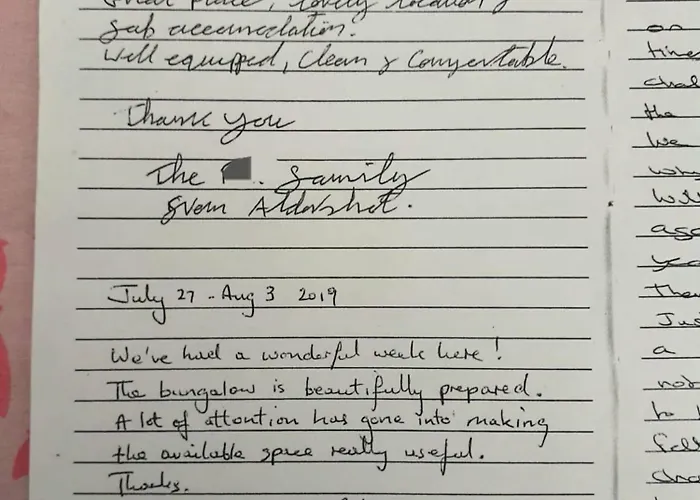 Great place, lovely location,
fab accomodation.
Well equipped, Clean & Comfortable.
Thank you
The . family
from Aldershot.
July 27 - Aug 3 2019
We've had a wonderful week here!
The bungalow is beautifully prepared.
A lot of attention has gone into making
the available space really useful.
Thanks.
on
the
We
why
a